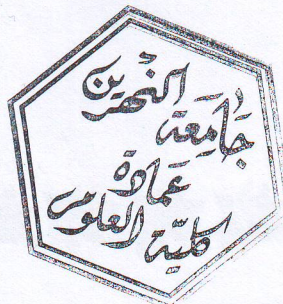 جامعة النهرين
عمادة
كلية العلوم